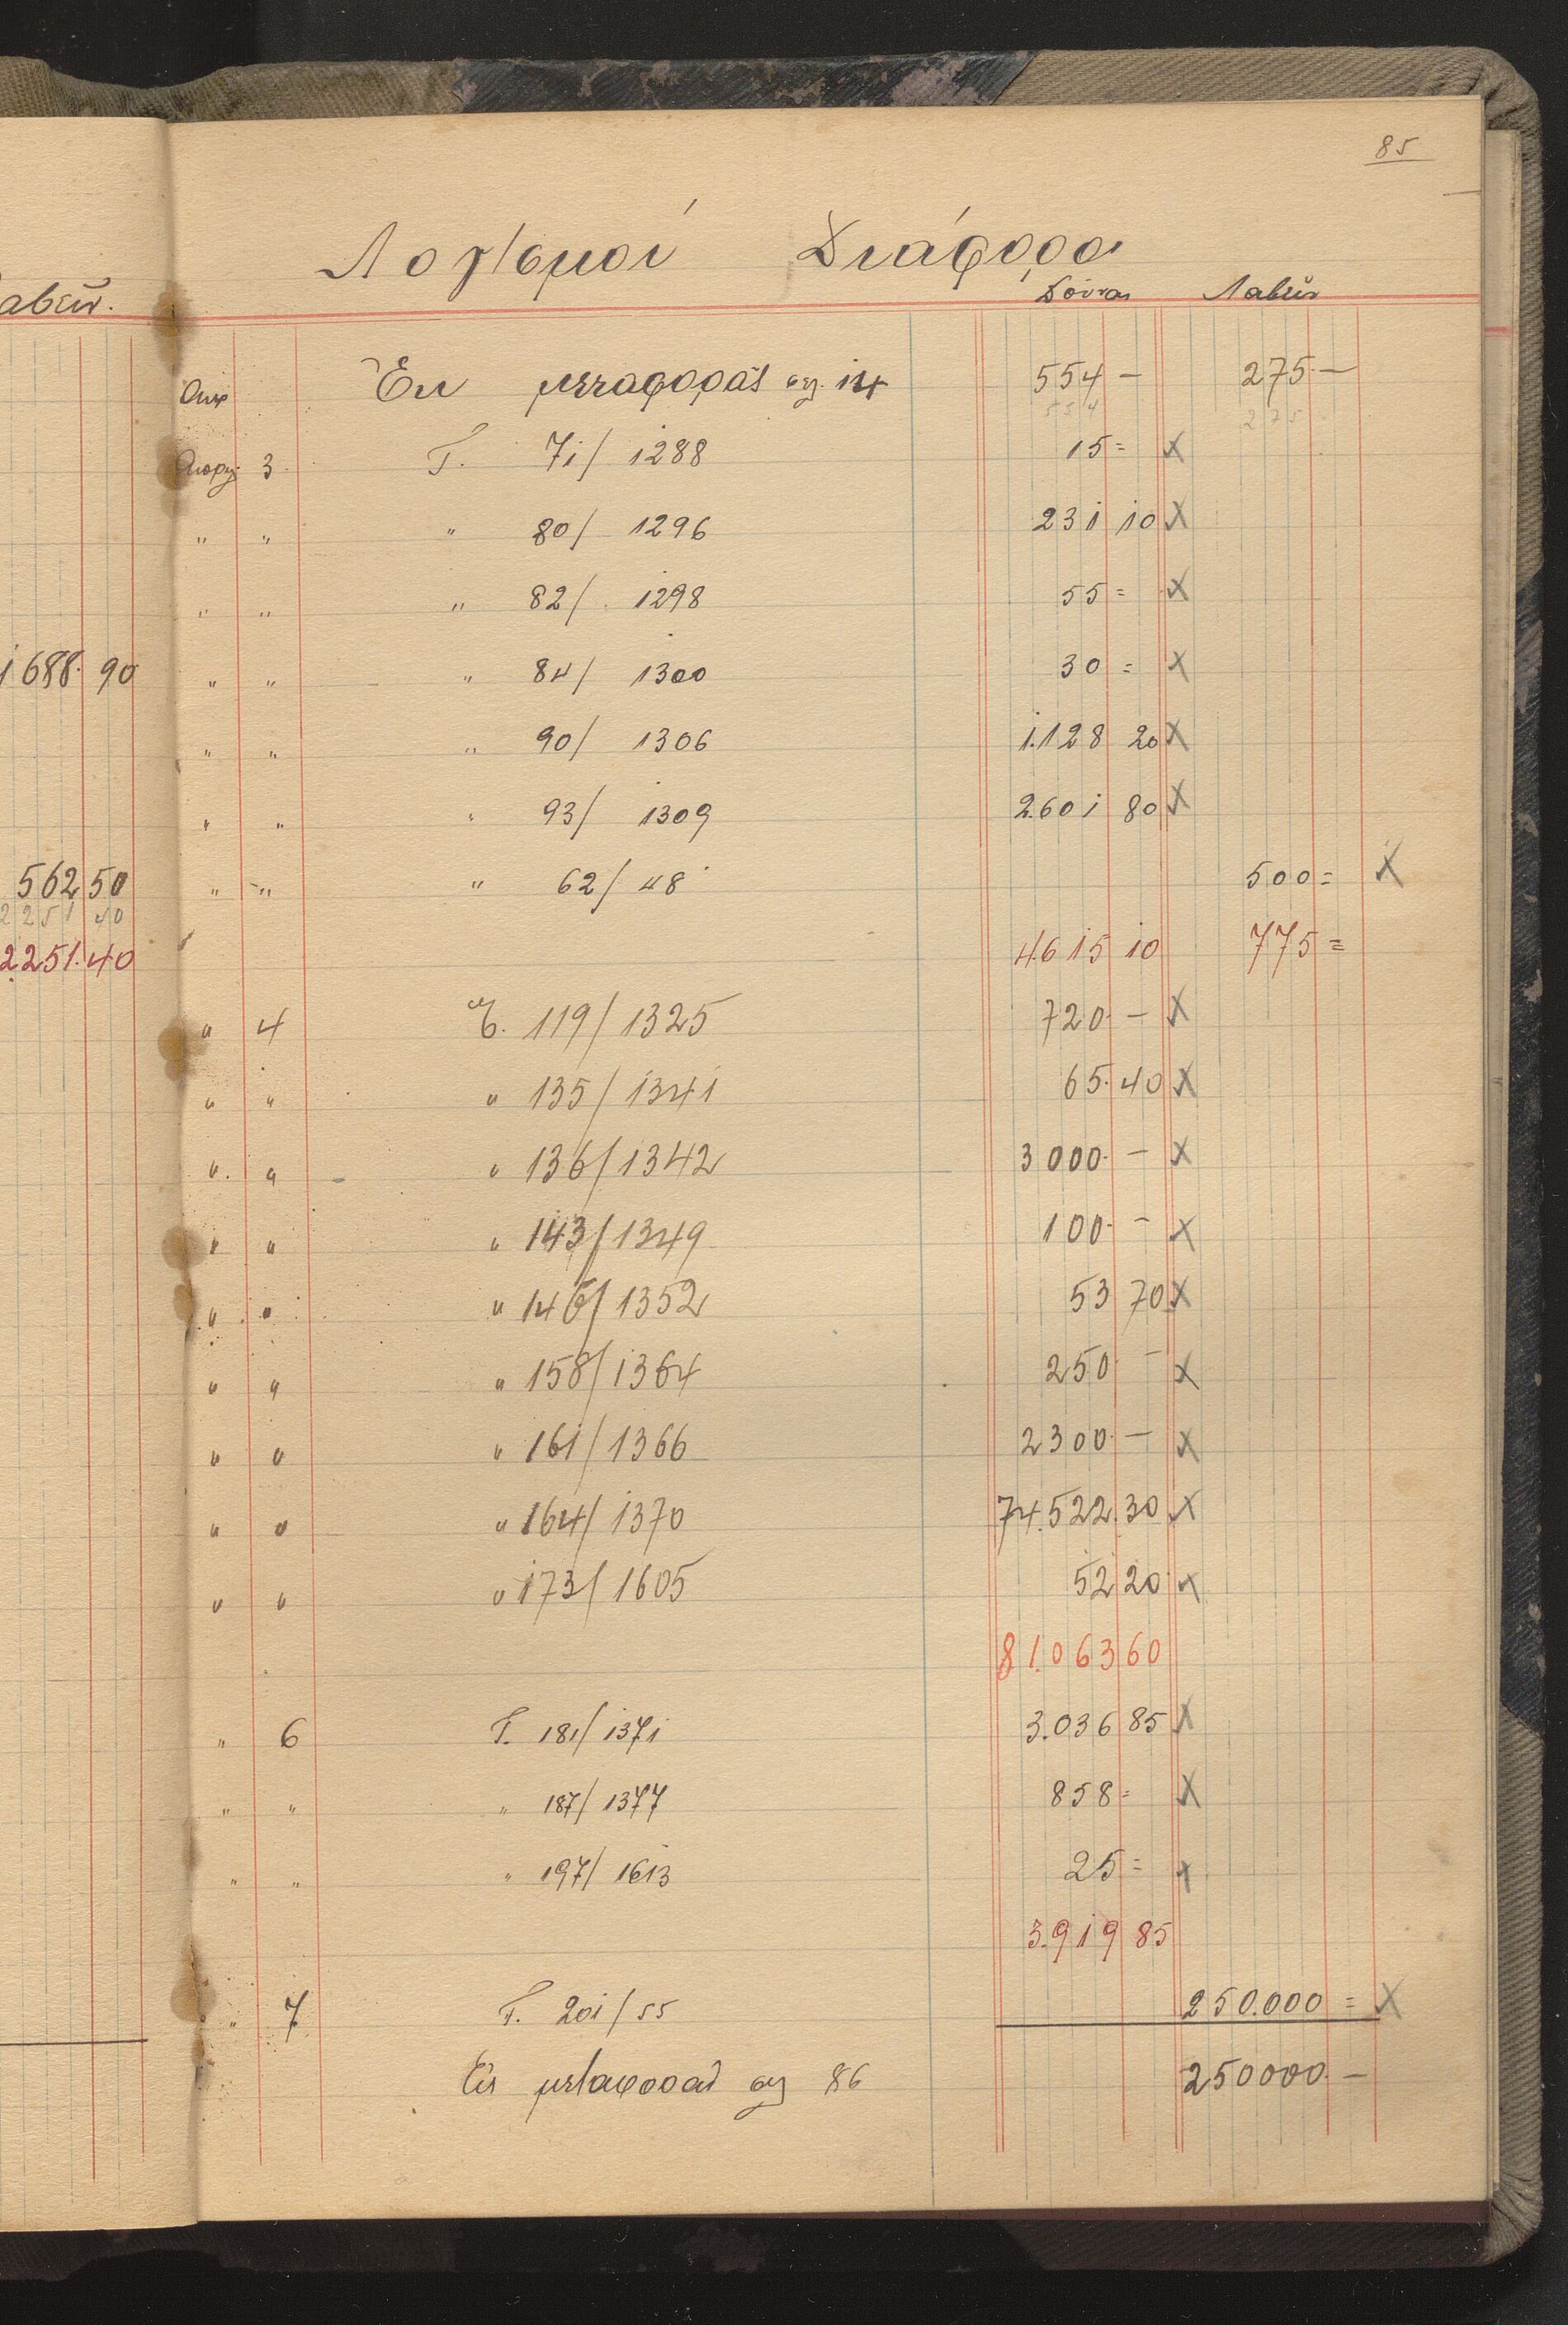 85
Λογ/σμοί Διάφοροι
Δοῦναι Λαβεῖν
αβεῖν.
Ἐκ μεταφορᾶς σελ. 124 554 — 275 —
554 275
3 Γ. 71/ 1288 15 = X
" " " 80/ 1296 231 10 X
" " " 82/ 1298 55 = X
1688. 90 " " " 84/ 1300 30 = X
" " " 90/ 1306 1.128 20 X
" " " 93/ 1309 2.601 80 X
562 50 " " " 62/ 48 500 = X
2251 40
2.251.40 4.615 10 775 =
" 4 Γ. 119/1325 720 — X
" " " 135/1341 65.40 X
" " " 136/1342 3000. — X
" " " 143/1349 100. — X
" " " 146/1352 53 70 X
" " " 158/1364 250 — X
" " " 161/1366 2300. — X
" " " 164/1370 74.522.30 X
" " " 173/1605 52 20 X
81.063 60
" 6 Γ. 181/1371 3.036 85 X
" " " 187/1377 858 = X
" " " 197/1613 25 = X
3.919 85
" 7 Γ. 201/55 250.000 = X
Εἰς μεταφορὰν σελ 86 250000. —